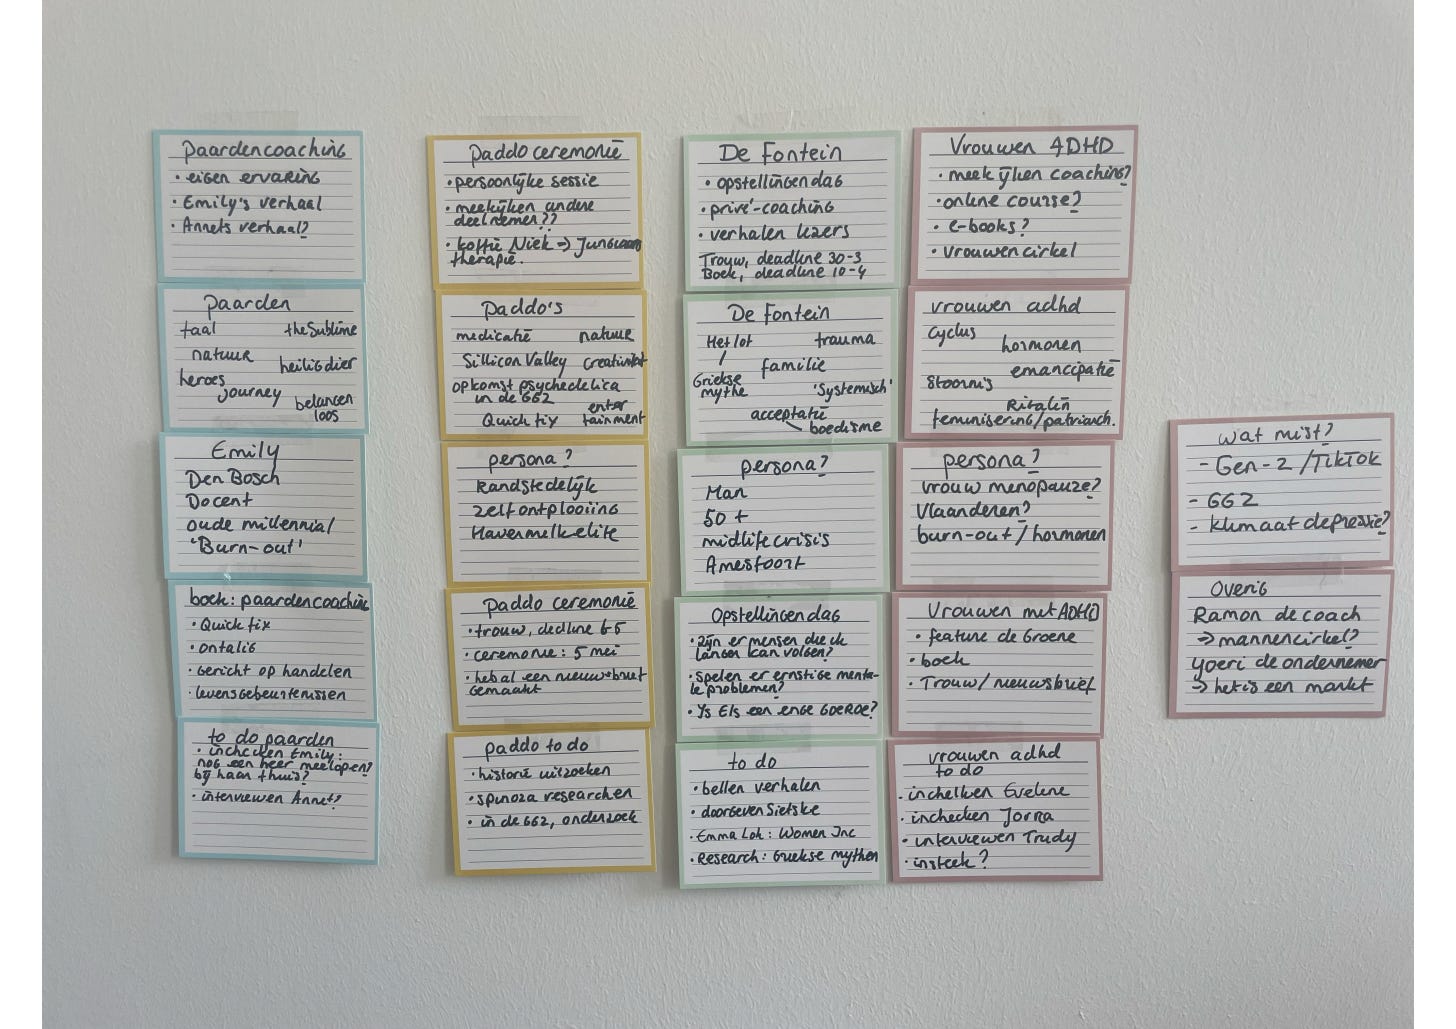 Paardencoaching
• eigen ervaring
• Emily's verhaal
• Annets verhaal?
Paarden
taal the Sublime
natuur heilig dier
heroes
journey belangen
loos
Emily
Den Bosch
Docent
oude millennial
'Burn-out'
boek: paardencoaching
• Quick fix
• ontalig
• Gericht op handelen
• levensgebeurtenissen
to do paarden
• inchecken Emily:
nog een keer meelopen?
bij haar thuis?
• interviewen Annet?
Paddo ceremonie
• persoonlijke sessie
• meekijken andere
deelnemer??
• koffie Niek → Jungiaans
therapie.
Paddo's
medicatie natuur
Sillicon Valley creativiteit
opkomst psychedelica
in de GGZ
Quick fix enter
tainment
persona?
Randstedelijk
zelfontplooiing
Havermelkelite
Paddo ceremonie
• trouw, dedline 6-5
• ceremonie: 5 mei
• heb al een nieuwsbrief
gemaakt
paddo to do
• historie uitzoeken
• spinoza researchen
• in de GGZ, onderzoek
De Fontein
• opstellingendag
• privé-coaching
• verhalen lezers
Trouw, deadline 30-3
Boek, deadline 10-4
De Fontein
Het lot trauma
familie
Griekse
mythe 'Systemisch'
acceptatie
boedisme
persona?
Man
50+
midlife crisis
Amesfoort
Opstellingendag
• Zijn er mensen die ik
langer kan volgen?
• Spelen er ernstige menta-
le problemen?
• Ys Els een enge GOEROE?
to do
• bellen verhalen
• doorgeven Sietske
• Emma Lok: Women Inc
• Research: Griekse mythen
Vrouwen ADHD
• meekijken coaching?
• online course?
• e-books?
• vrouwencirkel
vrouwen adhd
Cyclus
hormonen
emancipatie
Stoornis
Ritalin
feminisering/patriarch.
persona?
vrouw menopauze?
Vlaanderen?
burn-out/hormonen
Vrouwen met ADHD
• feature de Groene
• boek
• Trouw/nieuwsbrief
vrouwen adhd
to do
• inchekken Eveline
• inchecken Jorra
• interviewen Trudy
• insteek?
wat mist?
- Gen-Z/TikTok
- GGZ
- klimaatdepressie?
Overig
Ramon de coach
→ mannencirkel?
Yoeri de ondernemer
→ het is een markt